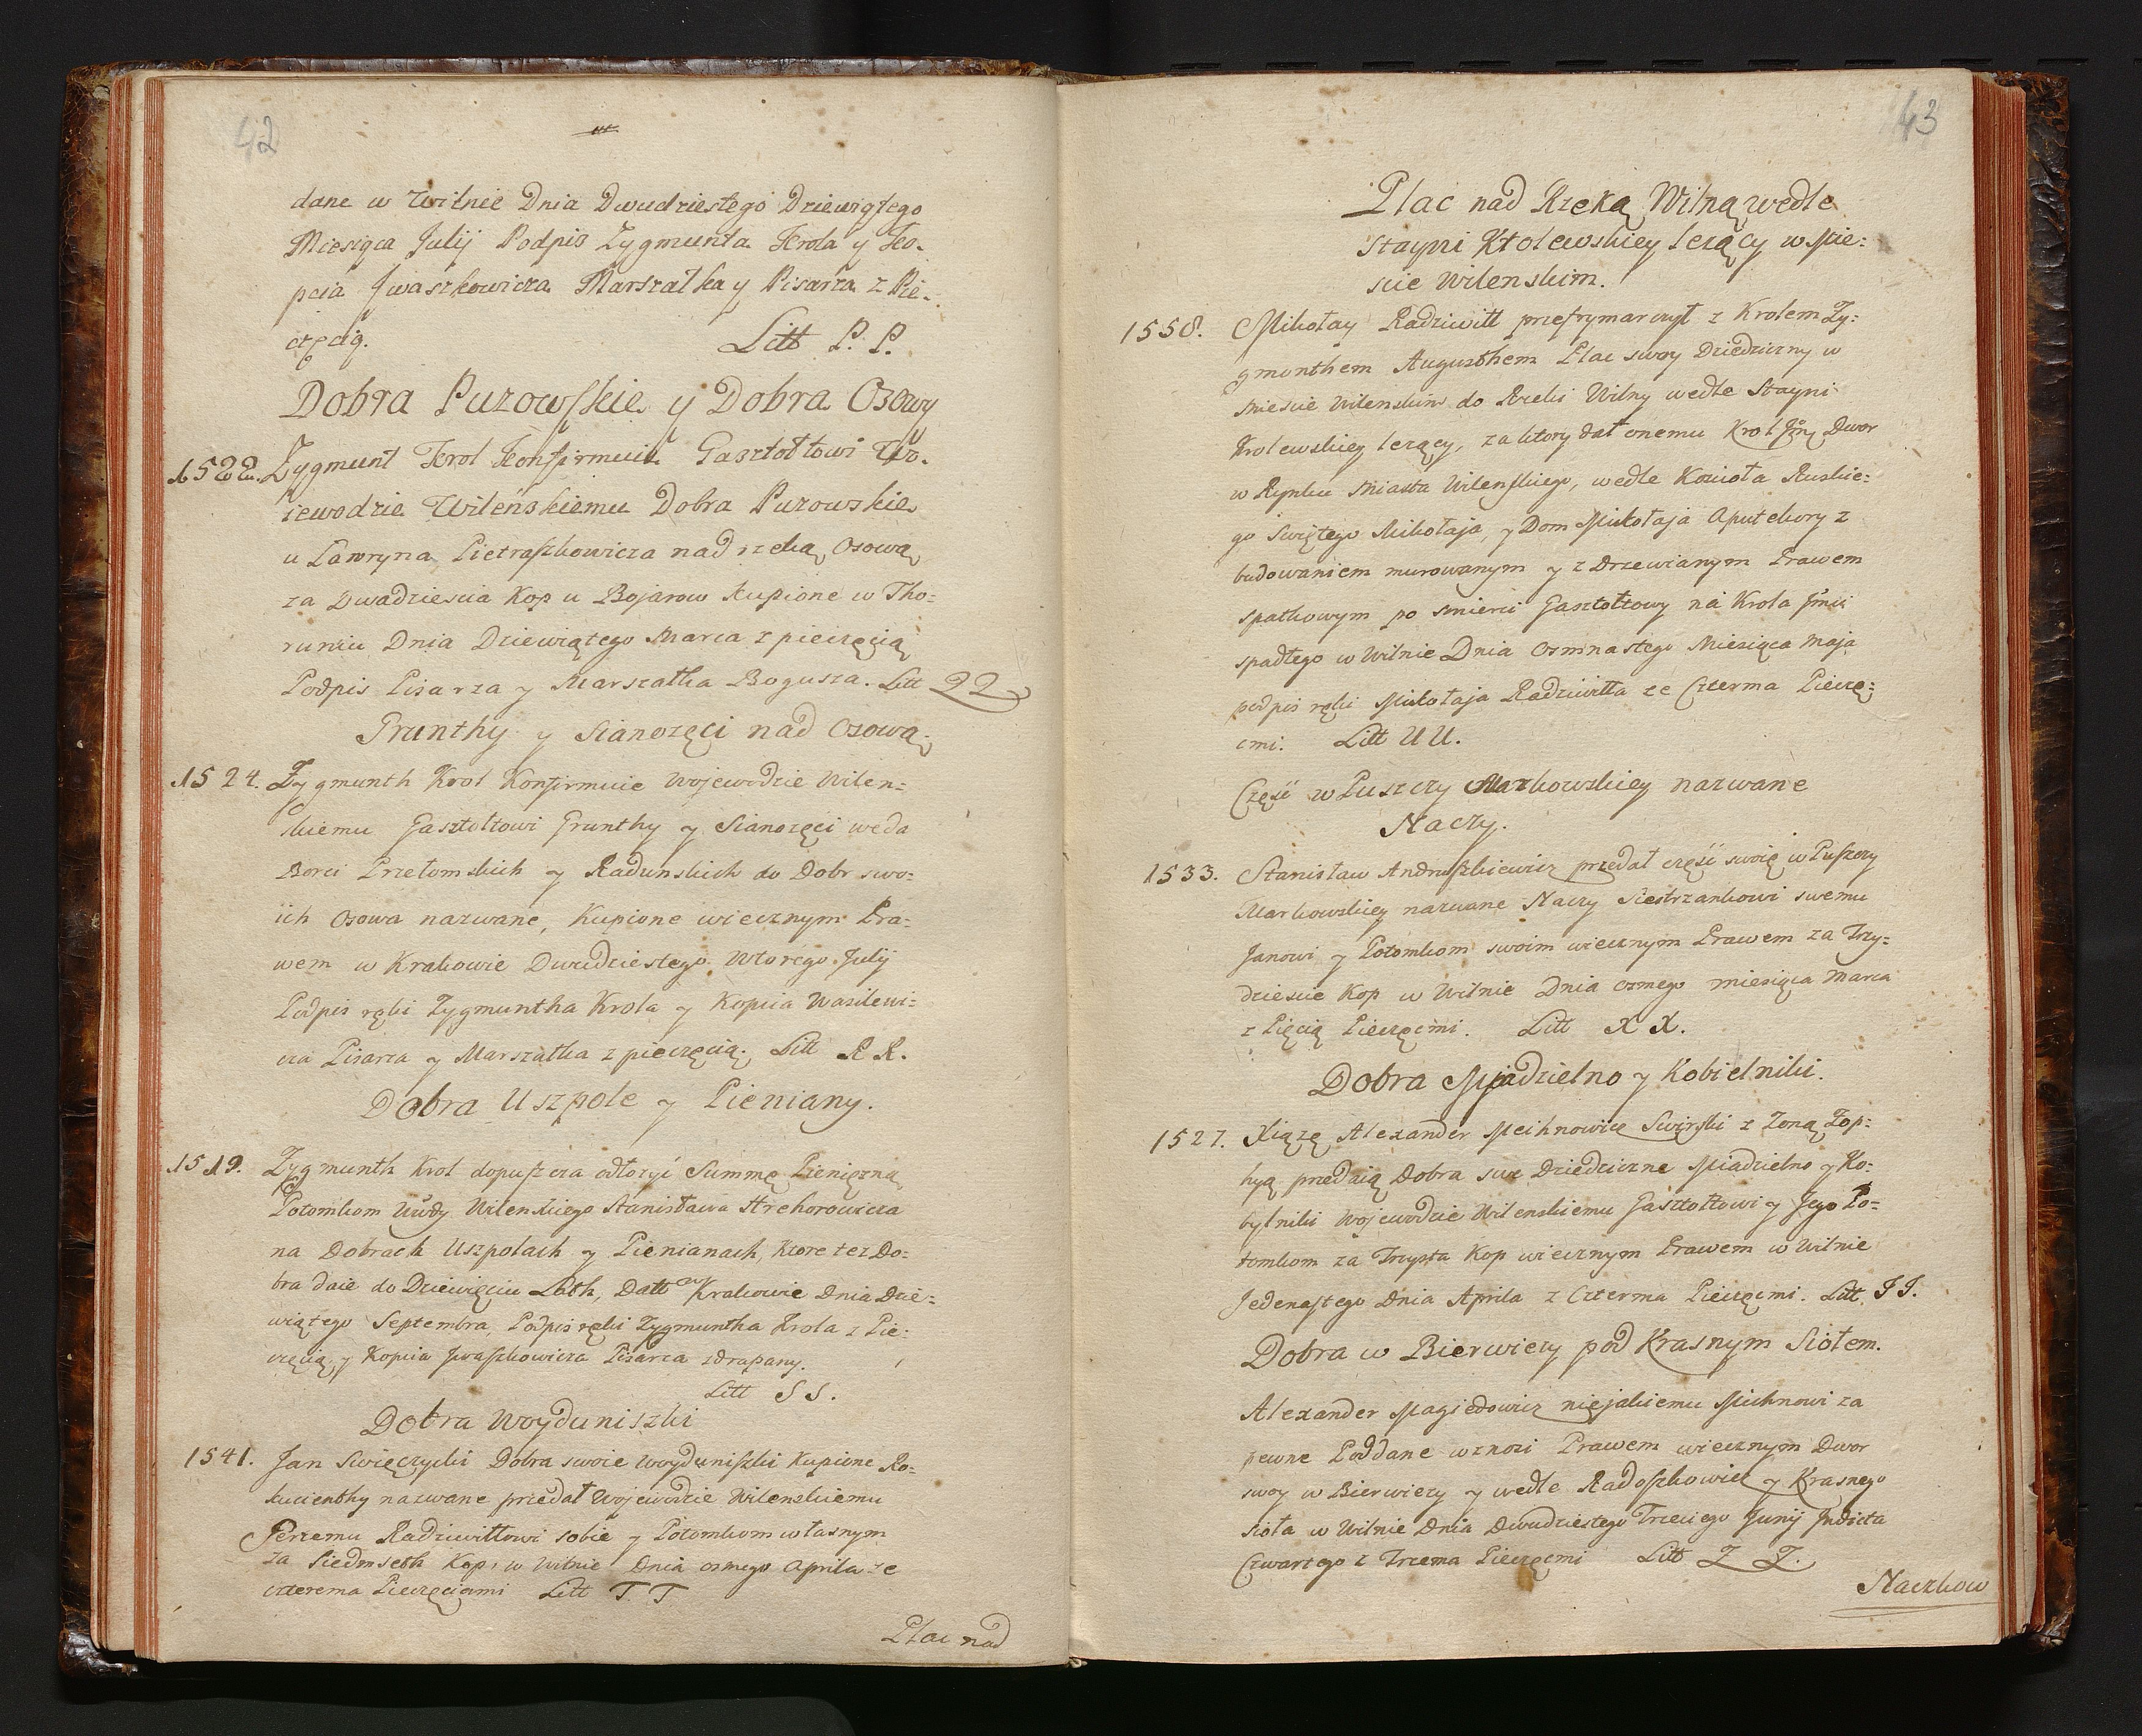 42
dane w Wilnie Dnia Dwudziestego Dziewiątego
Miesiąca Julij Podpis Zygmunta Krola y Ko-
pcia Jwaszkowicza Marszałka y Pisarza z Pie-
częcią. Litt P. P.
Dobra Puzowskie y Dobra Ozowy
1522. Zygmunt Krol Konfirmuie Gasztołtowi Wo-
iewodzie Wilenskiemu Dobra Puzowskie
u Lawryna Pietraszkowicza nad rzeką Osową
za Dwadziescia Kop u Bojarow kupione w Tho-
runiu Dnia Dziewiątego Marca z pieczęcią
Podpis Pisarza y Marszałka Bogusza. Litt QQ
Grunthy y Sianozęci nad Osową.
1524. Zygmunth Krol Konfirmuie Wojewodzie Wilen-
skiemu Gasztoltowi Grunthy y Sianozęci weda
Borci Przełomskich y Radunskich do Dobr swo-
ich Osowa nazwane, Kupione wiecznym Pra-
wem w Krakowie Dwudziestego Wtorego Julij
Podpis ręki Zygmuntha Krola y Kopcia Wasilewi-
cza Pisarza y Marszałka z pieczęcią. Litt R R.
Dobra Uszpole y Pieniany.
1519. Zygmunth Krol dopuszcza odłozyć Summę Pienięzną
Potomkom Wdy Wilenskiego Stanisława Hrehorowicza
na Dobrach Uszpolach y Pienianach, Ktore tez Do-
bra daie do Dziewięciu Lath, Datt w Krakowie Dnia Dzie-
wiątego Septembra, Podpis ręki Zygmuntha Krola z Pie-
częcią, y Kopcia Jwaszkowicza Pisarza zdrapany.
Litt S S.
Dobra Woyduniszki
1541. Jan Swięczycki Dobra swoie Woyduniszki Kupione Ro-
kucienthy nazwane przedał Wojewodzie Wilenskiemu
Jerzemu Radziwiłłowi sobie y Potomkom własnym
za Siedmseth Kop, w Wilnie Dnia osmego Aprila ze
czterema Pieczęciami Litt T. T
Plac nad
43
Plac nad Rzeką Wilną wedle
Stayni Krolewskiey lezący w Mie-
scie Wilenskim.
1558. Mikołay Radziwiłł przefrymarczył z Krolem Zy-
gmonthem Augusthem Plac swoy Dziedziczny w
Miescie Wilenskim do Rzeki Wilny wedle Stayni
Krolewskiey lezący, za ktory dał onemu Krol Jmć Dwor
w Rynku Miasta Wilenskiego, wedle Kosciola Ruskie-
go Swiętego Mikołaja, y Dom Mikołaja Aputekory z
budowaniem murowanym y z Drzewianym Prawem
spatkowym po smierci Gasztołtowy na Krola Jmći
spadłego w Wilnie Dnia Osmnastego Miesiąca Maja
podpis ręki Mikołaja Radziwiłła ze Czterma Pieczę-
cmi. Litt U U.
Częsć w Puszczy Markowskiey nazwane
Naczy.
1533. Stanisław Andruszkiewicz przedał częsć swoię w Puszczy
Markowskiey nazwane Naczy Siestrzankowi swemu
Janowi y Potomkom swoim wiecznym Prawem za Trzy-
dziescie Kop w Wilnie Dnia osmego miesiąca Marca
z Pięcią Pieczęcmi. Litt X X.
Dobra Mjadzielno y Kobielniki.
1527. Xiąze Alexander Michnowicz Swirski z Zoną Zop-
hyą przedaią Dobra swe Dziedziczne Miadzielno y Ko-
bylniki Wojewodzie Wilenskiemu Gasztołtowi y Jego Po-
tomkom za Trzysta Kop wiecznym Prawem w Wilnie
Jedenastego Dnia Aprila z Czterma Pieczęcmi. Litt J J.
Dobra w Bierwiczy pod Krasnym Siołem.
Alexander Magiedowicz niejakiemu Michnowi za
pewne Poddane wznosi Prawem wiecznym Dwor
swoy w Bierwiczy y wedle Radoszkowicz y Krasnego
Sioła w Wilnie Dnia Dwudziestego Trzeciego Junij Jndicta
Czwartego z Trzema Pieczęcmi Litt Z Z.
Naczkow